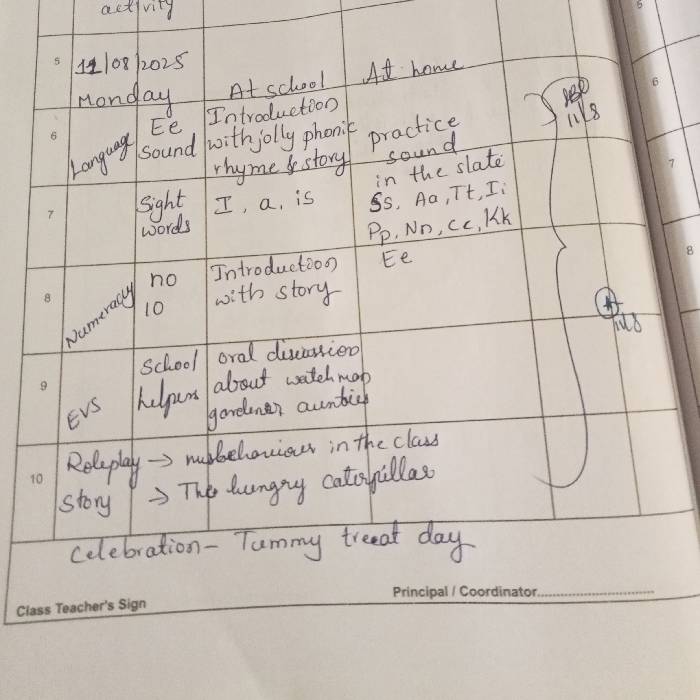 activity
5 11/08/2025
Monday At school At home
6 Language Ee Sound Introduction with jolly phonic rhyme & story practice sound in the slate
7 Sight words I, a, is Ss, Aa, Tt, Ii
Pp, Nn, Cc, Kk
8 Numeracy no 10 Introduction with story Ee
9 EVS School helpers oral discussion about watchman gardener aunties
10 Roleplay → misbehaviour in the class
Story → The hungry caterpillar
Celebration - Tummy treeat day
Class Teacher's Sign Principal / Coordinator
11/8
11/8
5
6
7
8